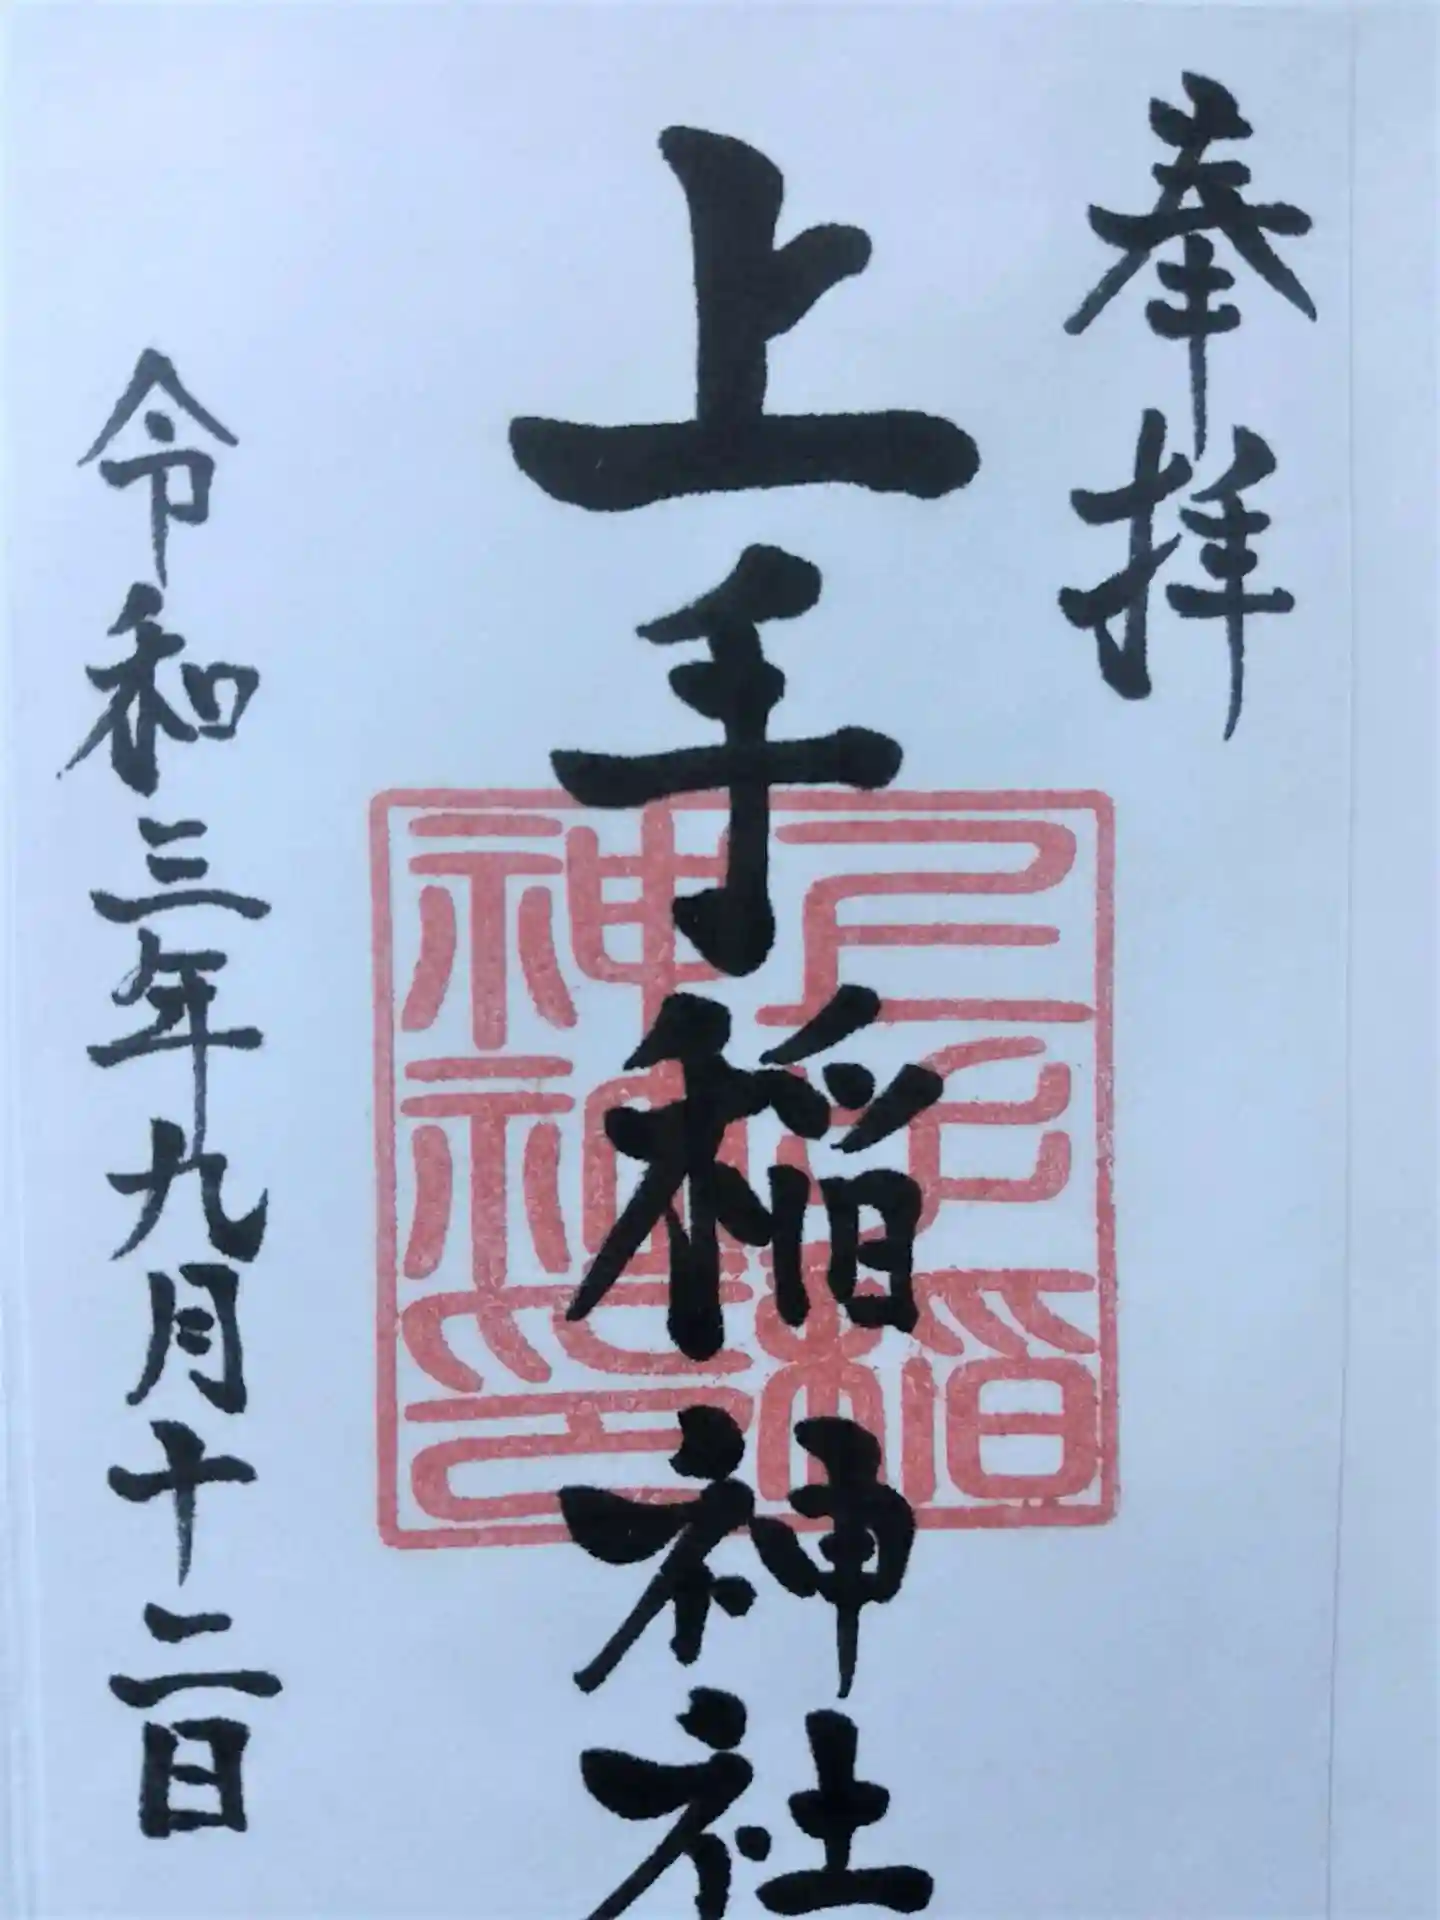 奉拝
上手稲神社
上手稲神社神印
令和三年九月十二日